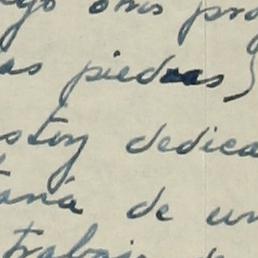 otro pro
as piedras)
stoy dedica
tará de un
trabajo